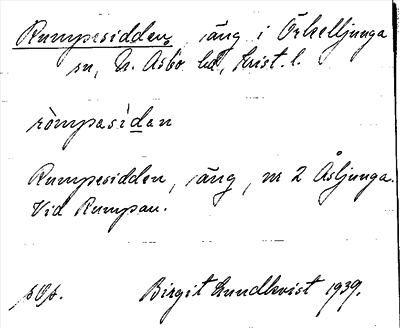 Rumpesidden, äng i Örkelljunga
sn, N. Åsbo hd, Krist. l.
ròmpasìdan
Rumpesidden, äng, nr 2 Åsljunga.
Vid Rumpan.
pOp. Birgit Lundkvist 1939.